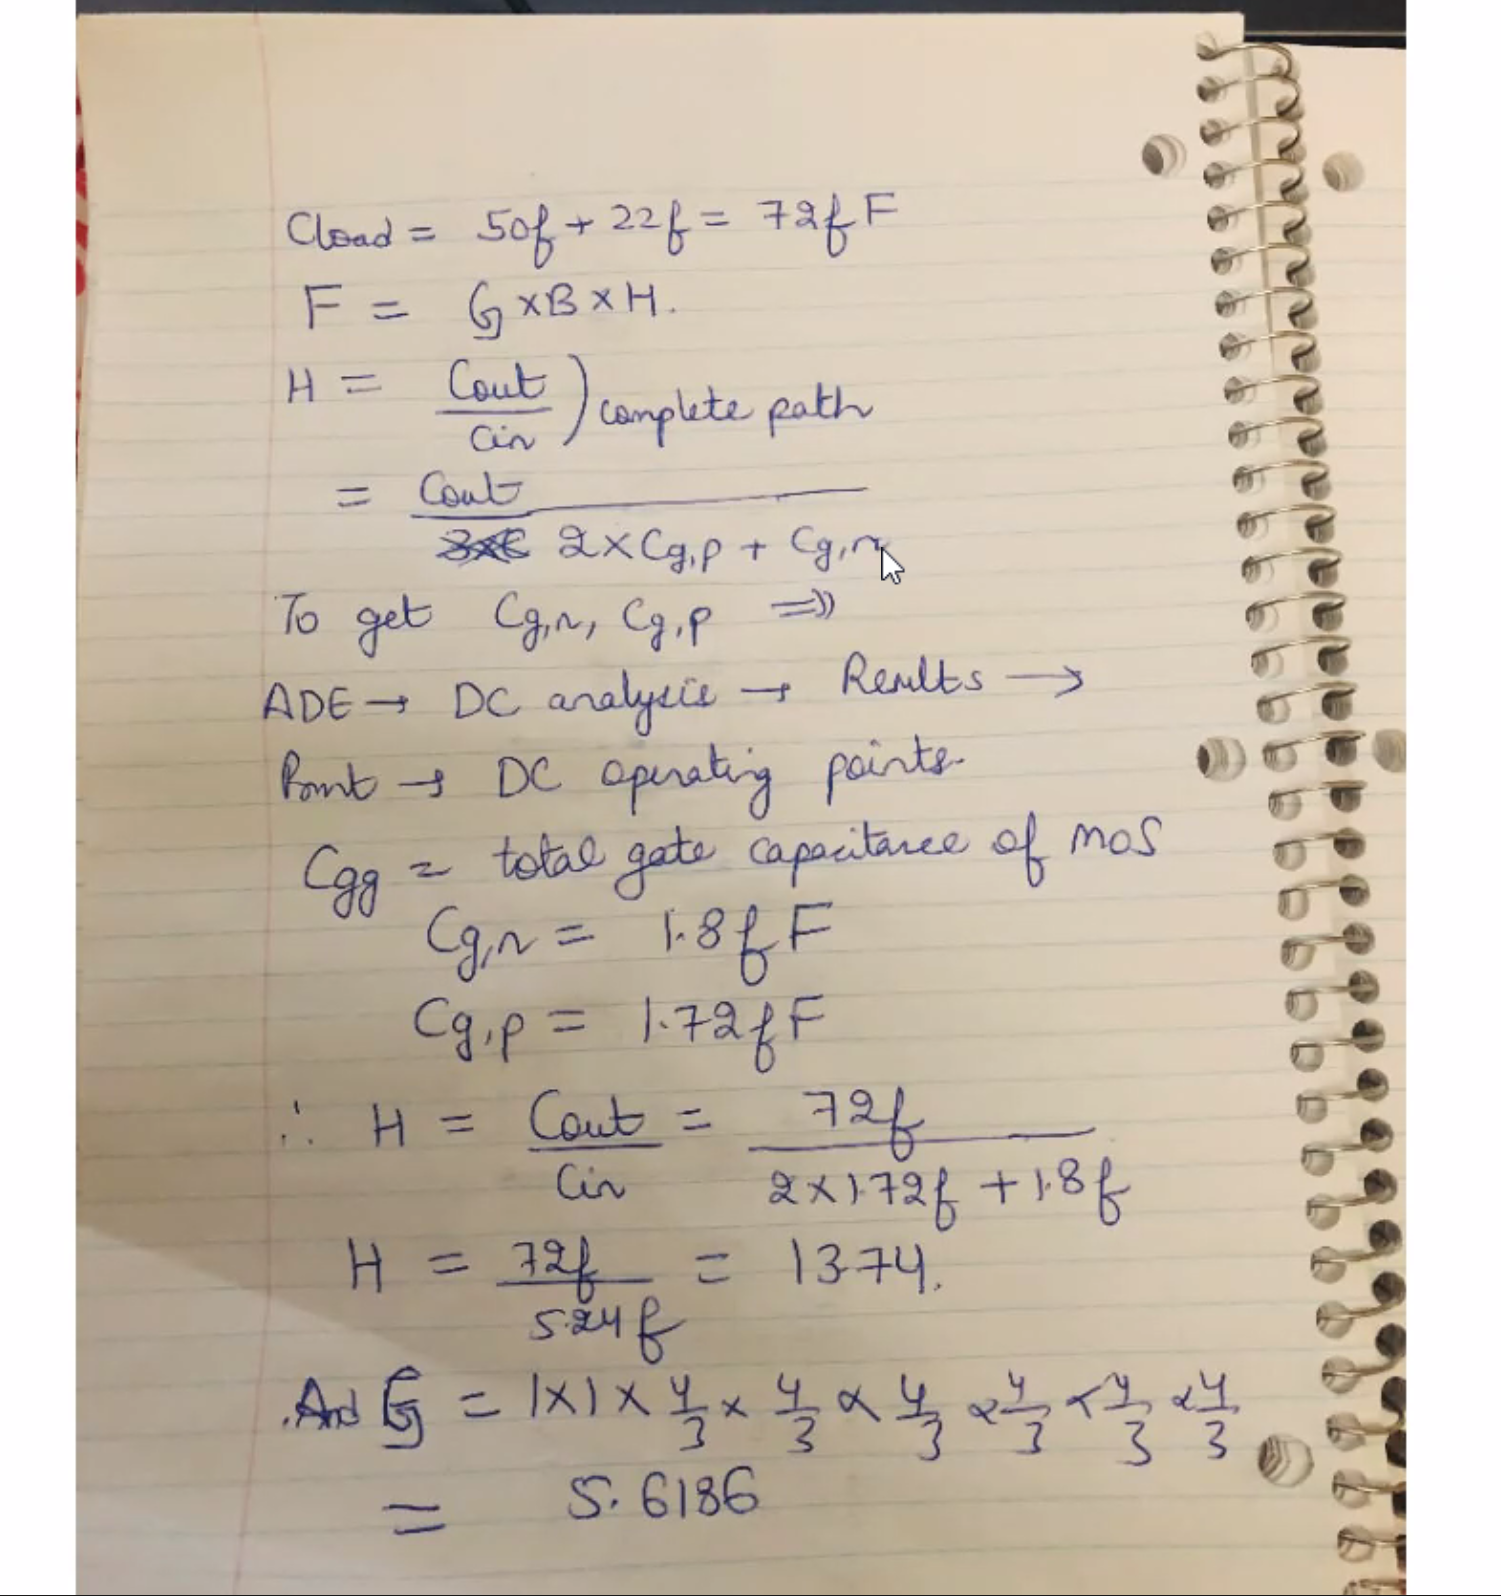 Cload = 50f + 22f = 72f F
F = G × B × H.
H = Cout / Cin ) complete path
= Cout / 2 × Cg,p + Cg,n
To get Cg,n, Cg,p ⇒))
ADE → DC analysis → Results →
Print → DC operating points.
Cgg = total gate capacitance of MOS
Cg,n = 1.8f F
Cg,p = 1.72f F
∴ H = Cout / Cin = 72f / 2 × 1.72f + 1.8f
H = 72f / 5.24f = 13.74.
And G = 1 × 1 × 4/3 × 4/3 × 4/3 × 4/3 × 4/3 × 4/3
= 5.6186